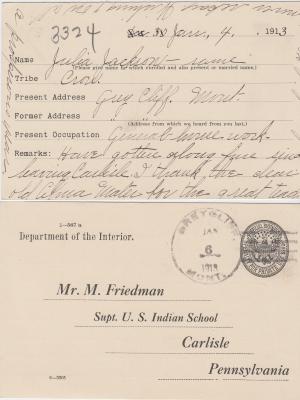 3324
Jan. 4, 1913
Name Julia Jackson - same
(Please give name by which enrolled and also present or married name.)
Tribe Crow.
Present Address Grey Cliff. Mont-
Former Address
(Address from which we heard from you last.)
Present Occupation General house work-
Remarks: Have gotten along fine since
leaving Carlisle. I thank the dear
old Alma Mater for the great
1—567 a
Department of the Interior.
GREYCLIFF
JAN
6
1913
MONT.
Mr. M. Friedman
Supt. U. S. Indian School
Carlisle
Pennsylvania